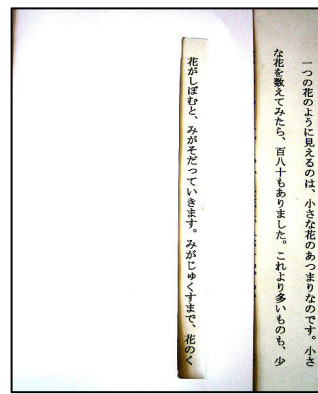 一つの花のように見えるのは、小さな花のあつまりなのです。小さ
な花を数えてみたら、百八十もありました。これより多いものも、少
花がしぼむと、みがそだっていきます。みがじゅくすまで、花のく